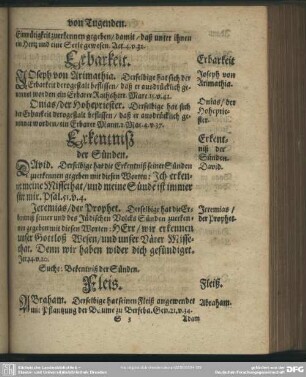 von Tugenden.
Einmütigkeit zuerkennen gegeben / damit / daß unter ihnen
ein Hertz und eine Seele gewesen. Act. 4. v. 32.
Erbarkeit.
Erbarkeit
JOseph von Arimathia. Derselbige hat sich der
Joseph von
Erbarkeit derogestalt beflissen / daß er ausdrücklich ge-
Arimathia.
nennet worden ein Erbarer Rathsherr. Marc. 15. v. 43.
Onias / der Hohepriester. Derselbige hat sich
Onias / der
der Erbarkeit derogestalt beflissen / daß er ausdrücklich ge-
Hohepriester.
nennet worden / ein Erbarer Mann. 2. Mac. 4. v. 37.
Erkentniß
Erkent-
der Sünden.
niß der
Sünden.
DAvid. Derselbige hat die Erkentniß seiner Sünden
David.
zuerkennen gegeben mit diesen Worten: Ich erken-
ne meine Missethat / und meine Sünde ist immer
für mir. Psal. 51. v. 4.
Jeremias / der Prophet. Derselbige hat die Er-
Jeremias /
kentniß seiner und des Jüdischen Volcks Sünden zuerken-
der Prophet.
nen gegeben mit diesen Worten: HErr / wir erkennen
unser Gottloß Wesen / und unser Väter Misse-
that. Denn wir haben wider dich gesündiget.
Jer. 14. v. 20.
Suche: Bekentniß der Sünden.
Fleis.
Fleiß.
ABraham. Derselbige hat seinen Fleiß angewendet
Abraham.
mit Pflantzung der Bäume zu Berseba. Gen. 21. v. 34.
Adam